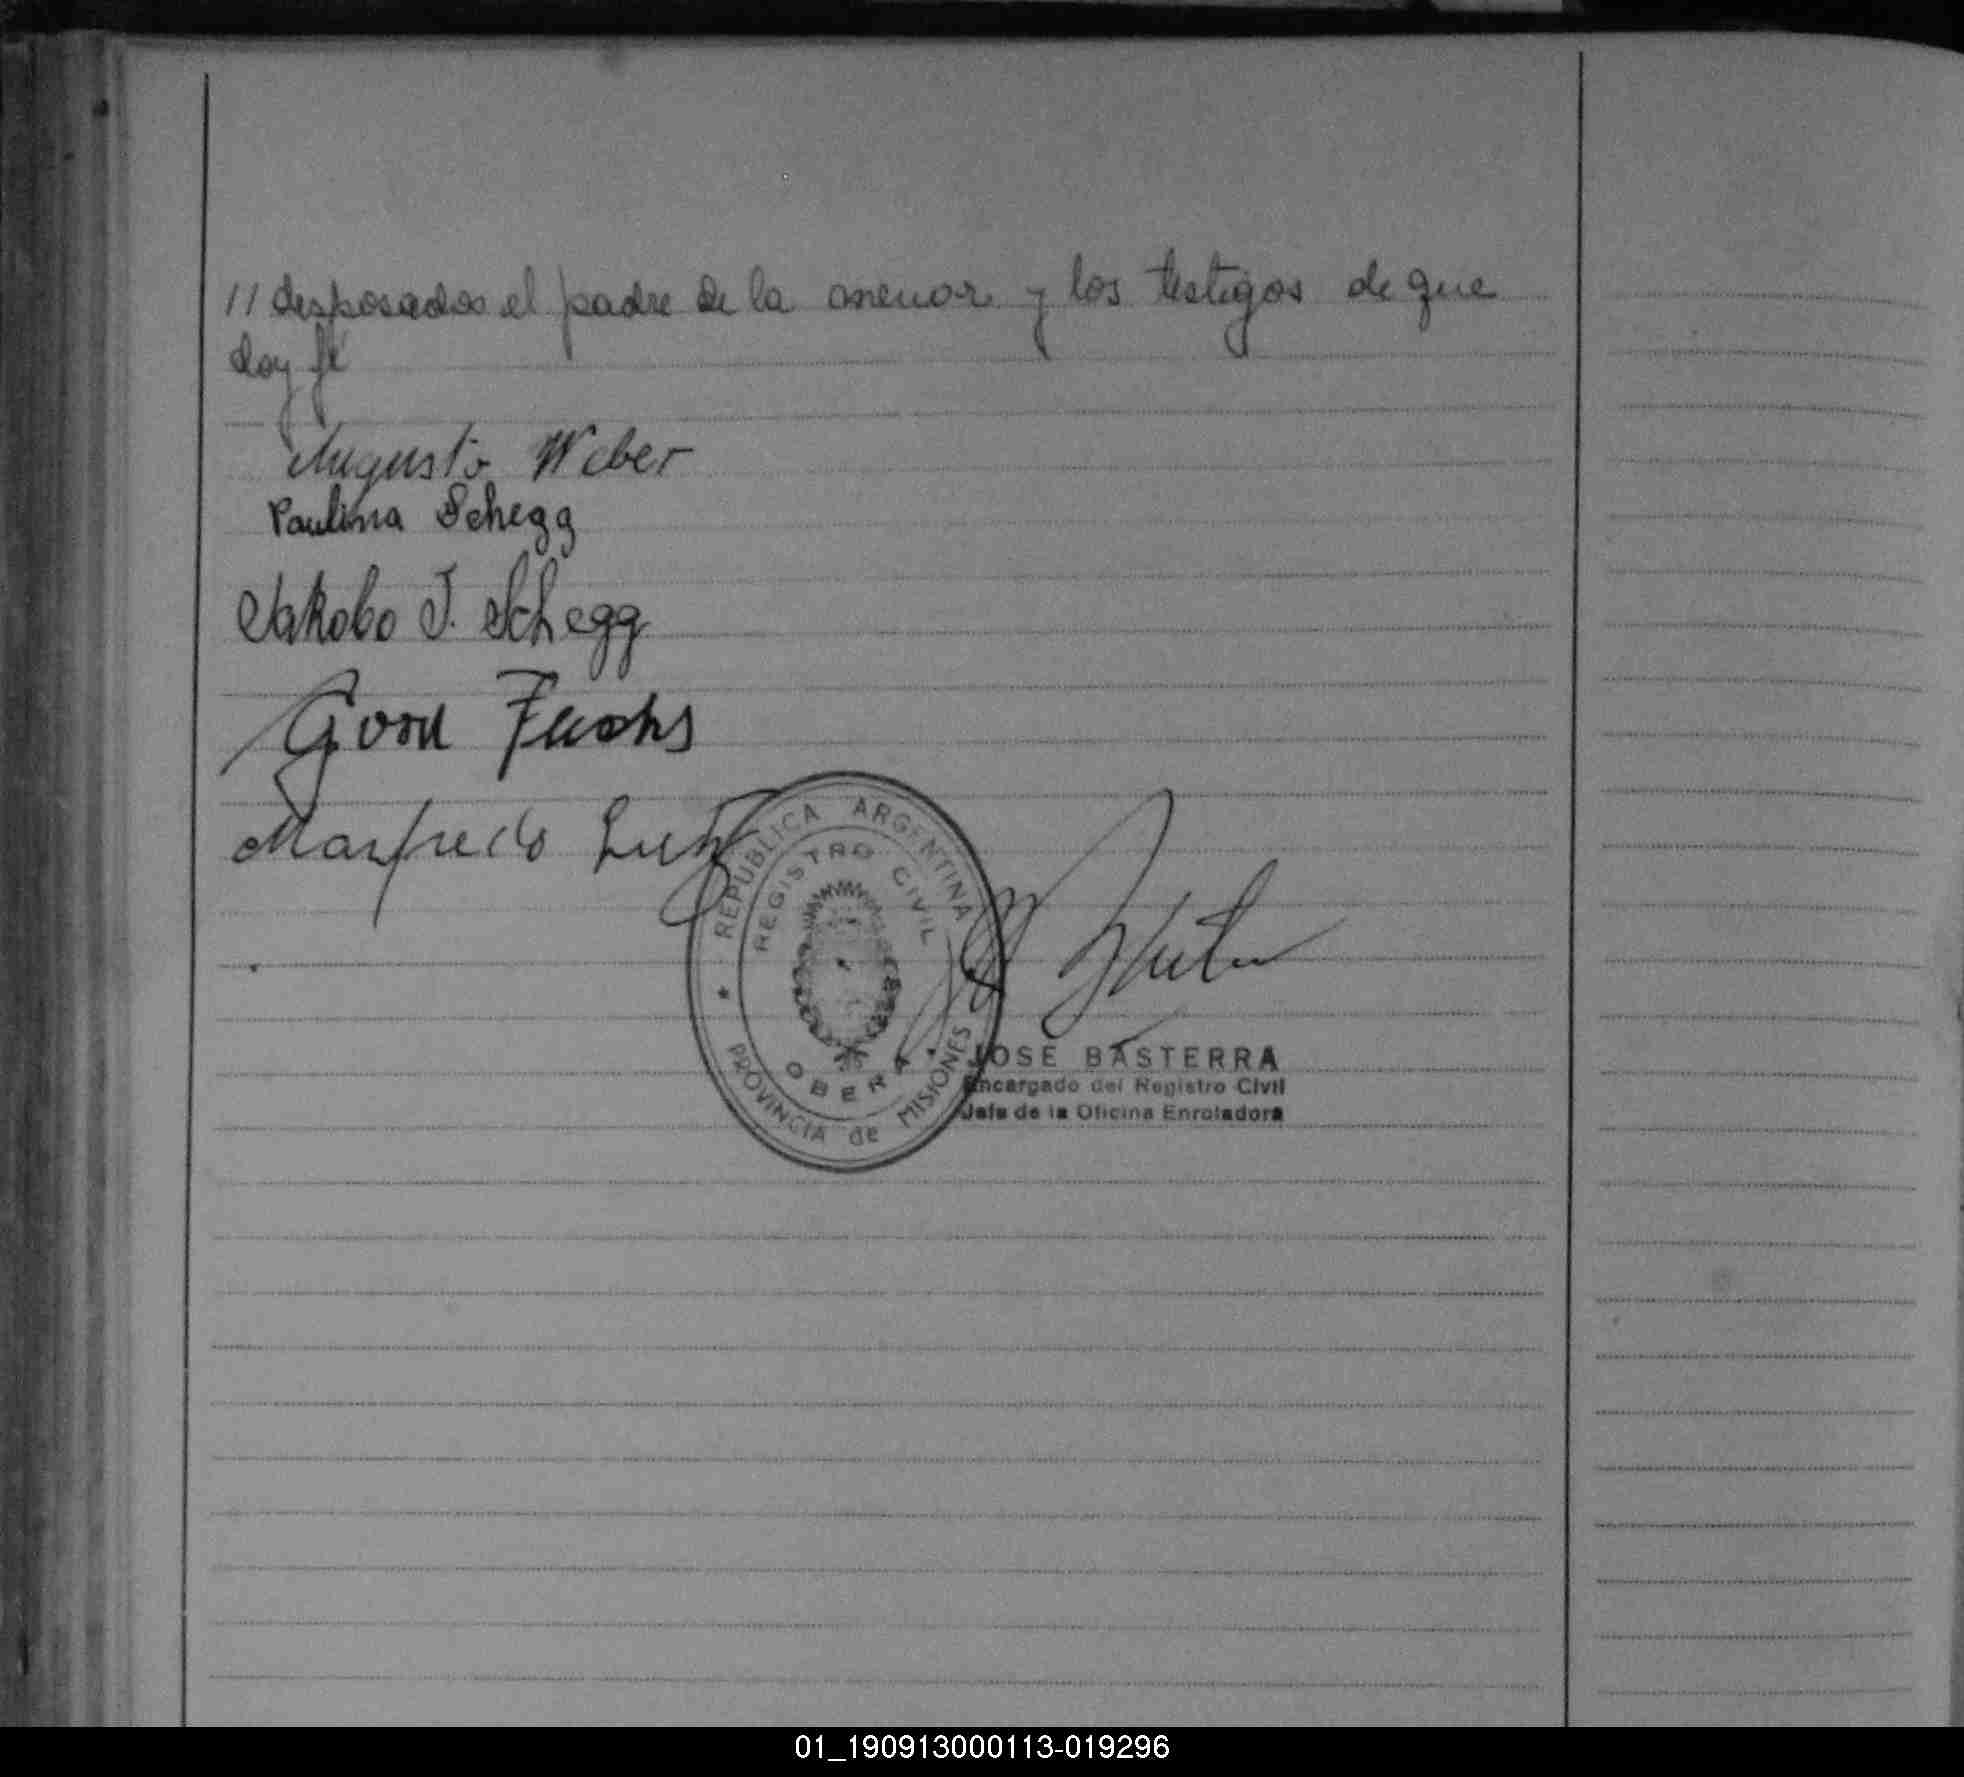 // desposados el padre de la menor y los testigos de que
doy fé
Augusto Weber
Paulina Schegg
Jakobo J. Schegg
Fuchs
Manfredo Lutz
REPUBLICA ARGENTINA
REGISTRO CIVIL
OBERA
PROVINCIA de MISIONES
JOSE BASTERRA
Encargado del Registro Civil
Jefe de la Oficina Enroladora
01_190913000113-019296